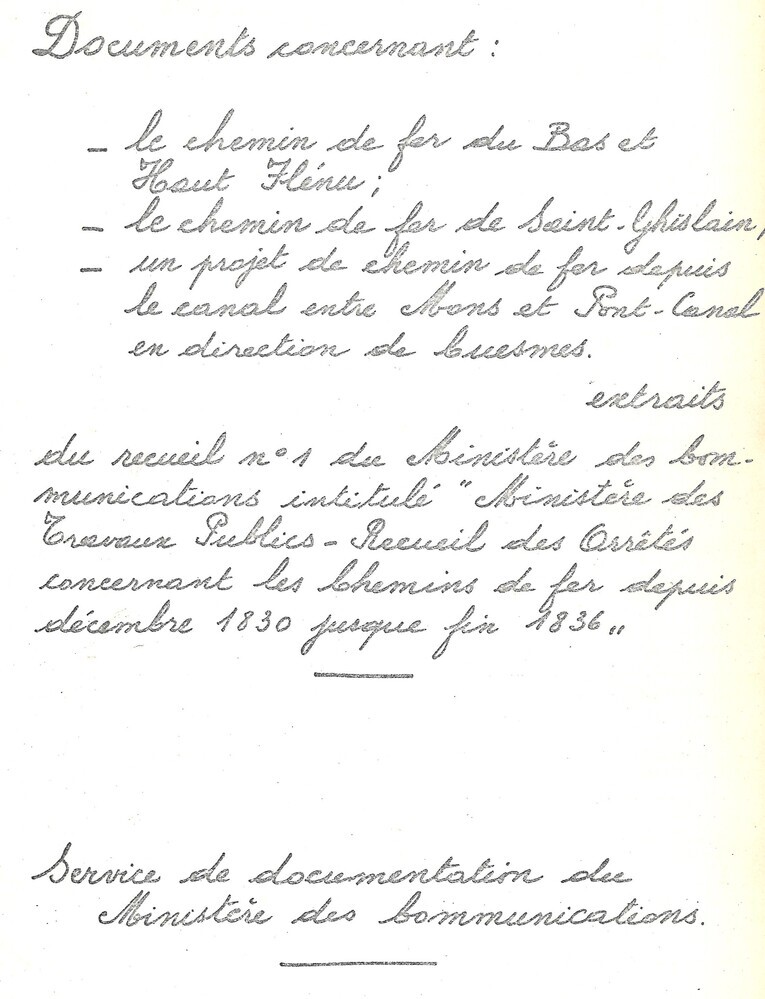 Documents concernant :
– le chemin de fer du Bas et
Haut Flénu ;
– le chemin de fer de Saint-Ghislain,
– un projet de chemin de fer depuis
le canal entre Mons et Pont-Canal
en direction de Cuesmes.
extraits
du recueil n° 1 du Ministère des Com-
munications intitulé " Ministère des
Travaux Publics – Recueil des Arrêtés
concernant les Chemins de fer depuis
décembre 1830 jusque fin 1836 „
Service de documentation du
Ministère des Communications.